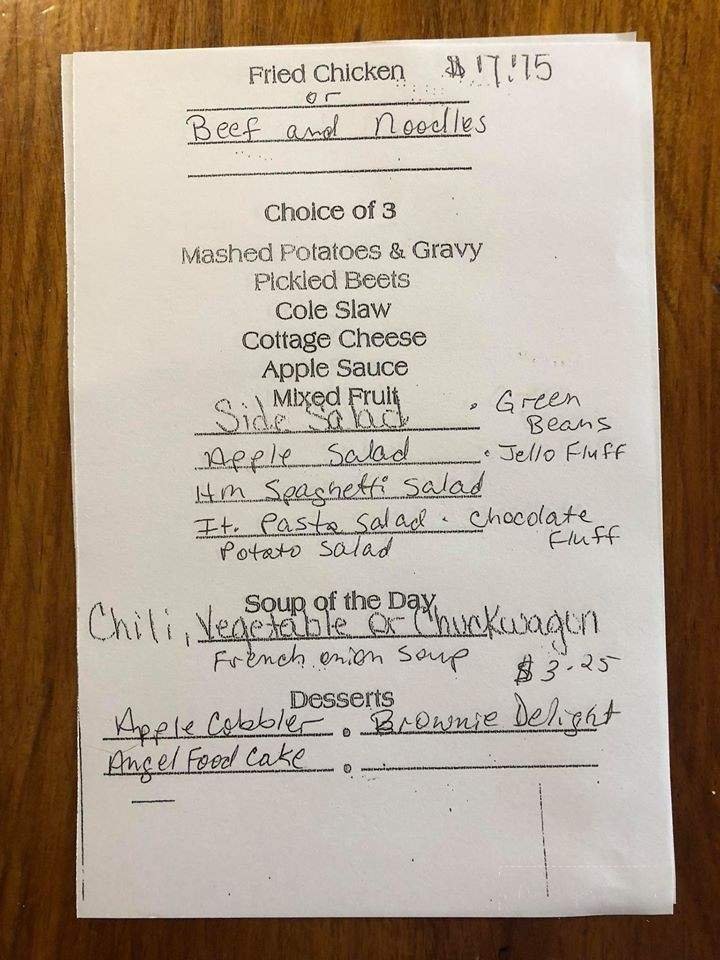 Fried Chicken
or
Beef and Noodles
Choice of 3
Mashed Potatoes & Gravy
Pickled Beets
Cole Slaw
Cottage Cheese
Apple Sauce
Mixed Fruit
Side Salad · Green Beans
Apple Salad · Jello Fluff
Hm Spaghetti Salad
It. Pasta Salad · Chocolate Fluff
Potato Salad
Soup of the Day
Chili, Vegetable or Chuckwagon
French onion Soup
$3.25
Desserts
Apple Cobbler . Brownie Delight
Angel Food Cake .